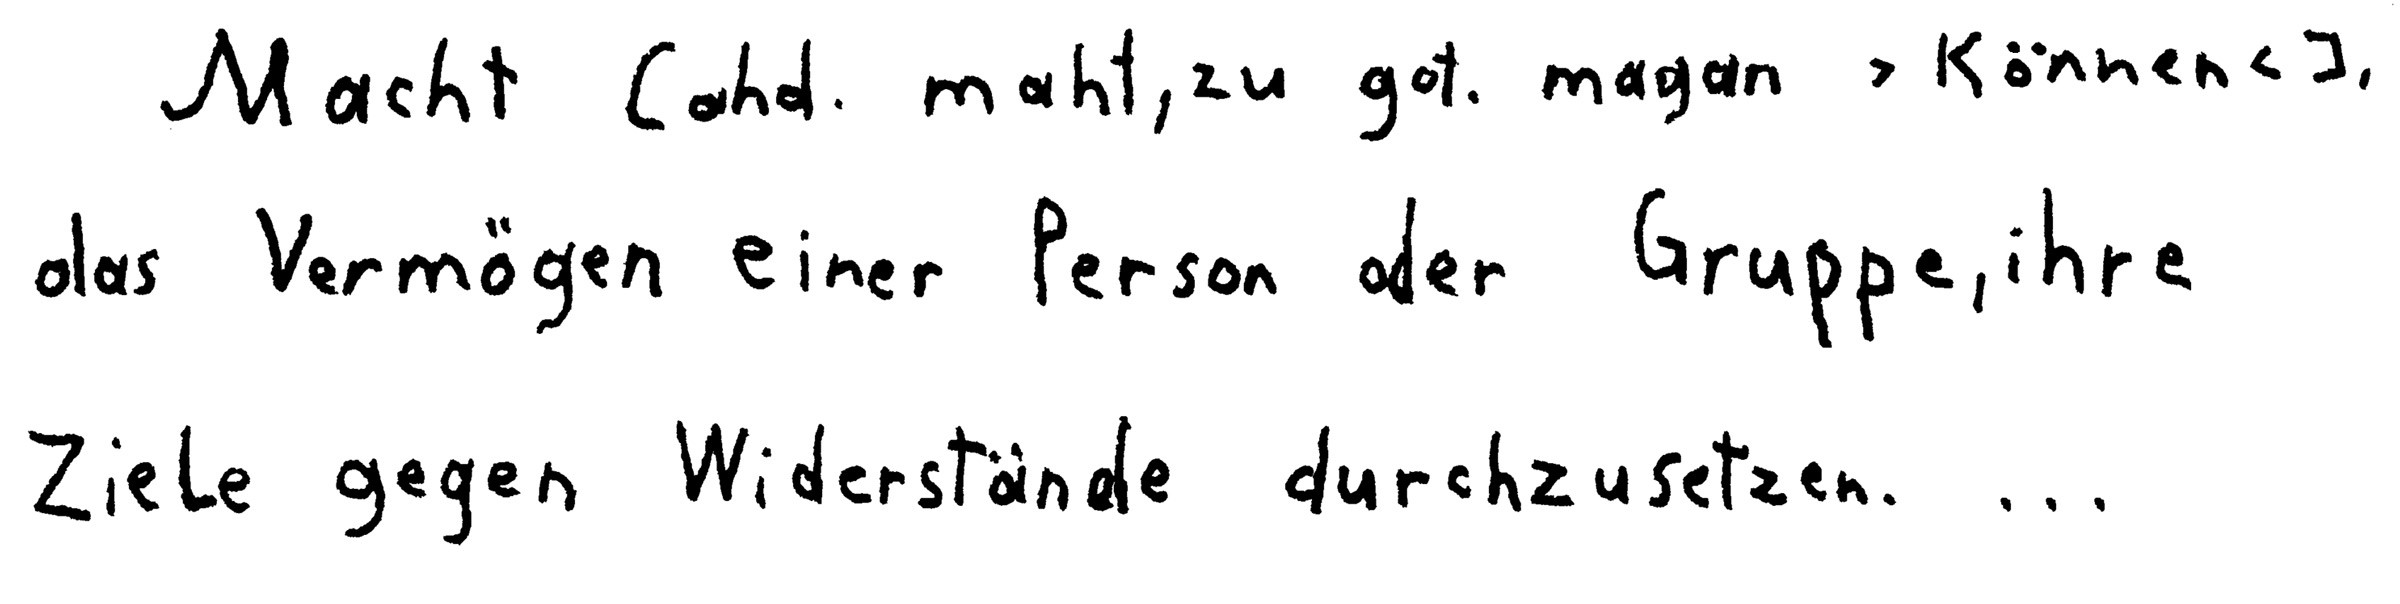 Macht [ahd. maht, zu got. magan >Können<],
das Vermögen einer Person oder Gruppe, ihre
Ziele gegen Widerstände durchzusetzen. ...